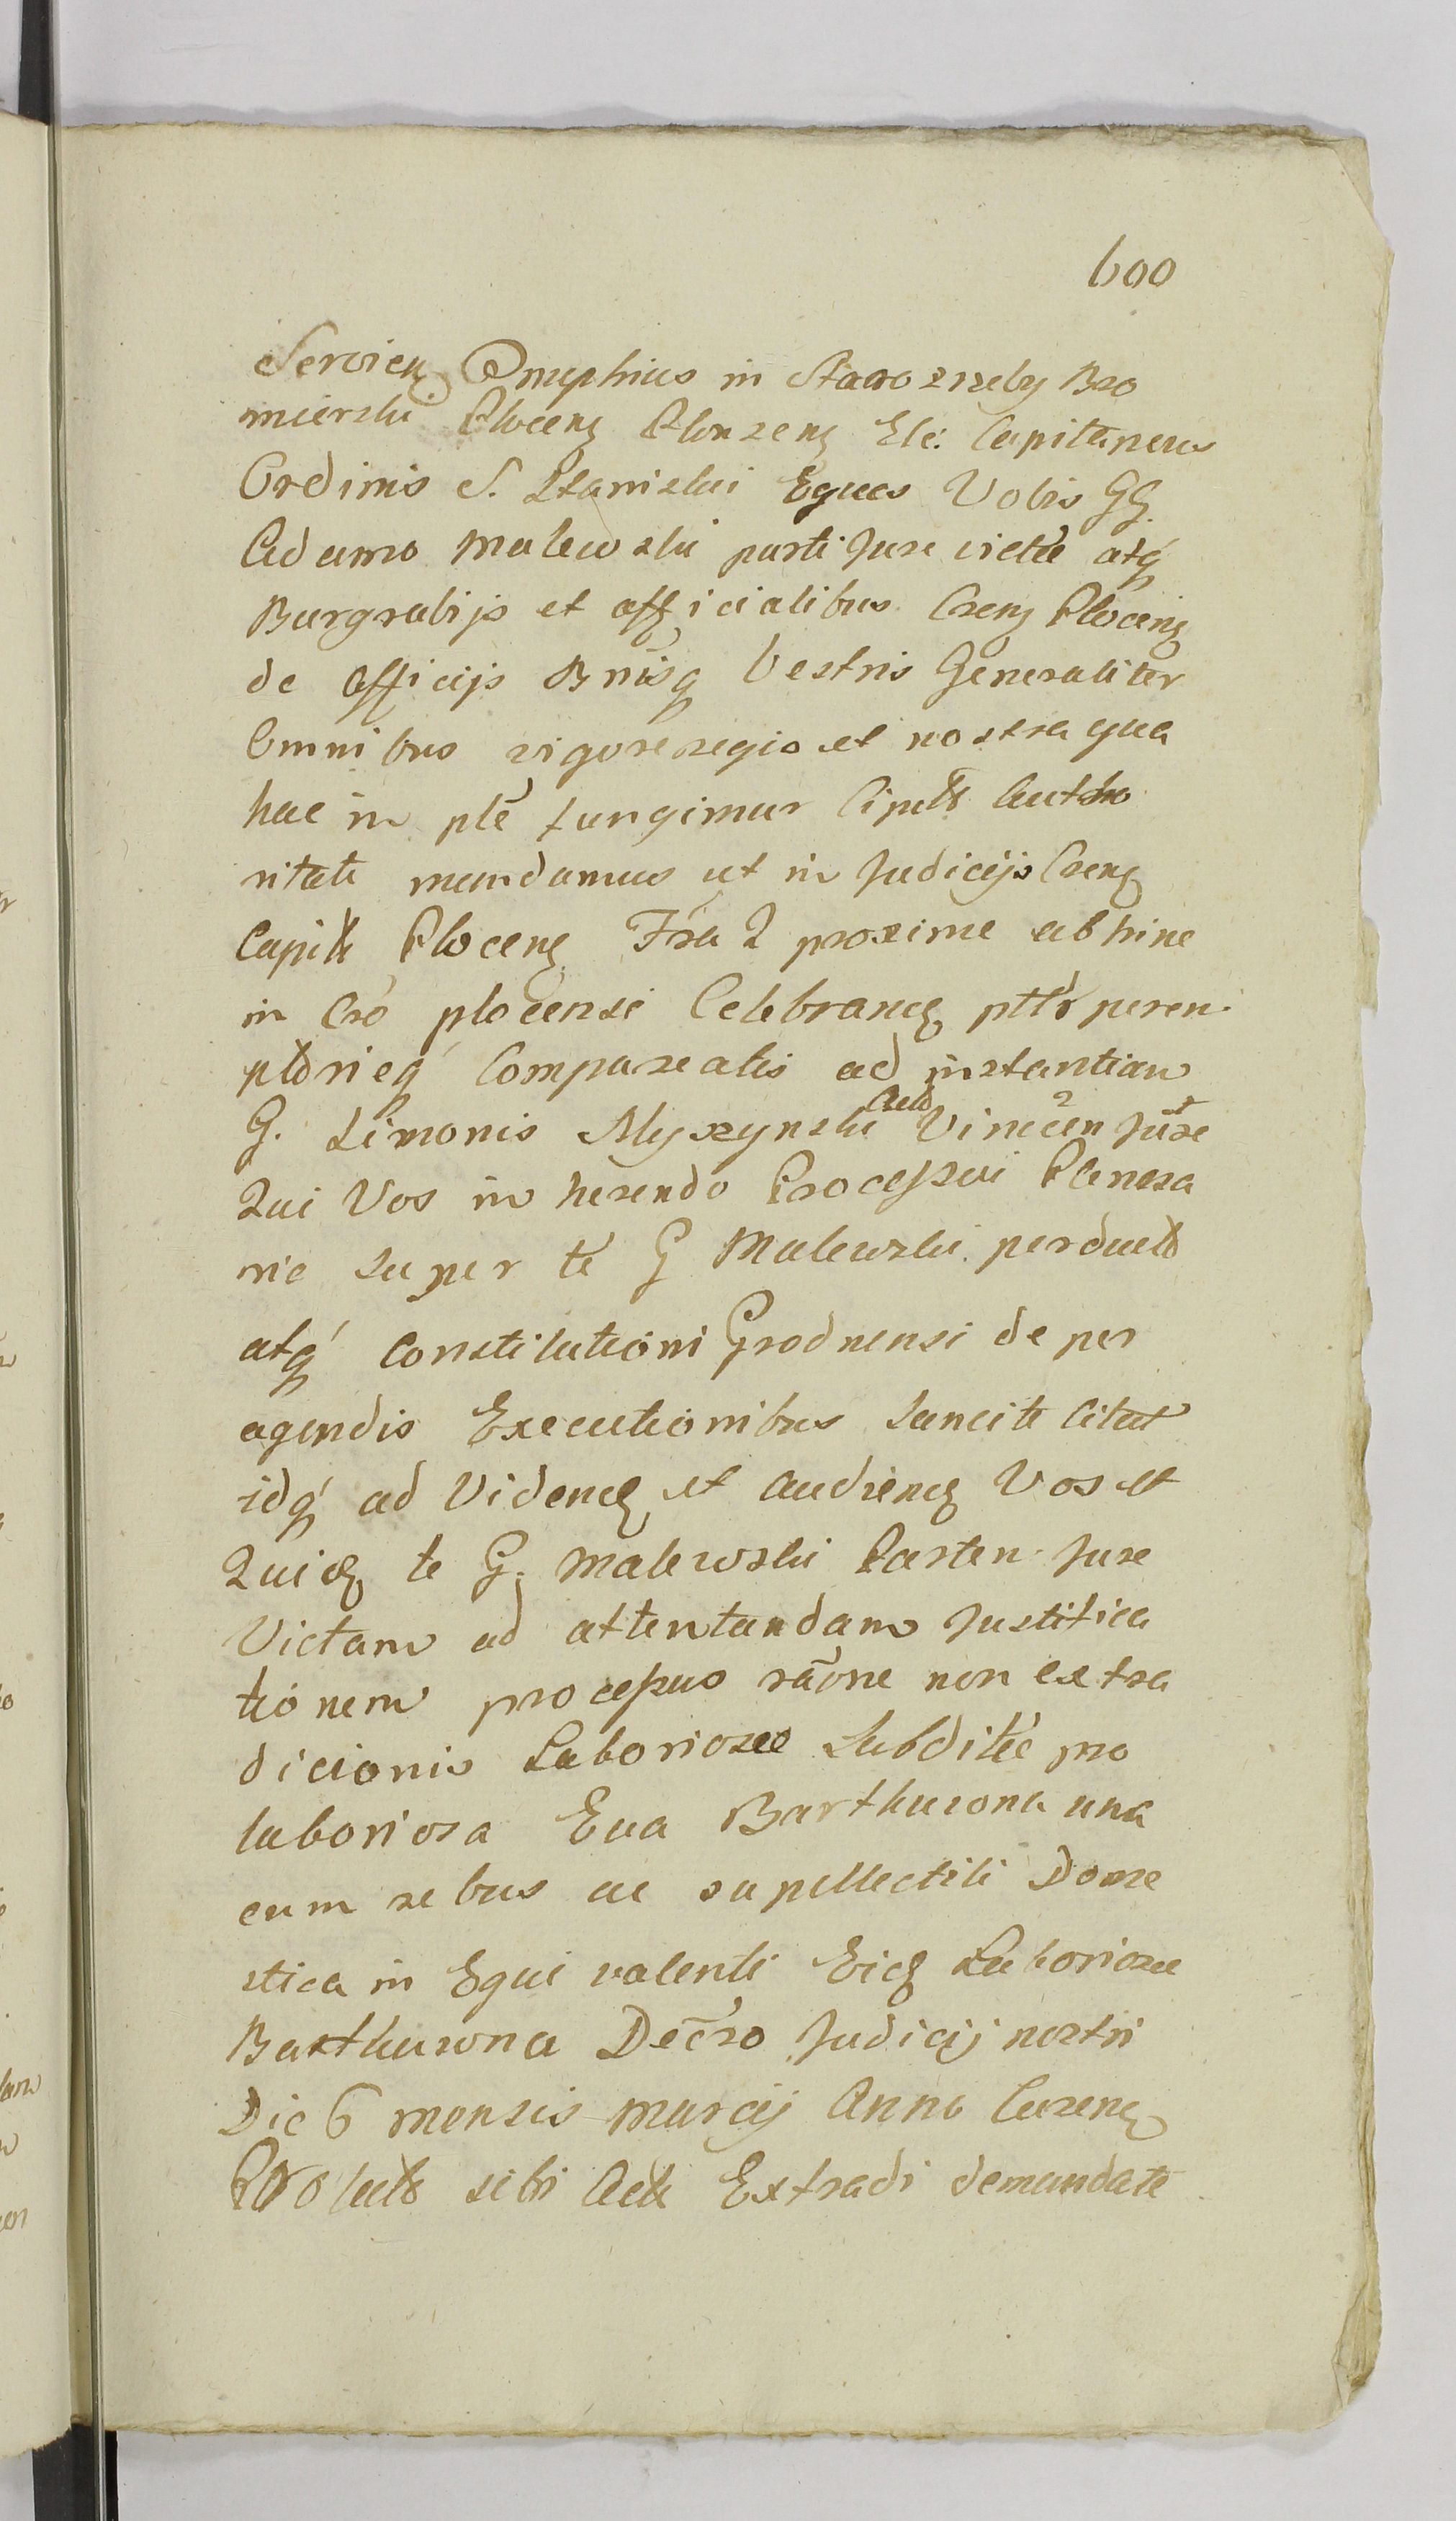 600
Servien Onuphius in Staroźreby Bro
mierski Plocen Plonzen Etc: Capitaneus
Ordinis S. Stanislai Eques Vobis GG.
Adamo Malewski parti Jure victæ atq́
Burgrabijs et officialibus Cren Plocen
de officijs Bnisq Vestris Generaliter
Omnibus vigore regia et nostra qua
hac in pte fungimur Cipult Autho
ritate mandamus ut in Judicijs Cren
Capitt Plocen Fra 2 proxime abhinc
in Cró plocensi Celebran pttr peren
ptorieq́ Compareatis ad instantiam
G. Simonis Myszynski Actt Vincen Jure
Qui Vos in herendo Processui Plenera
rie super te G Malewski perduct
atq́ Constitutioni Grodnensi de per
agendis Executionibus Sancite Citat
idq́ ad Viden et Audien Vos et
Quid te G. Malewski Parten Jure
Victam ad attentandam Justifica
tionem processus rãone non extra
dicionis Laboriosæ Subditæ pro
laboriosa Eva Barthkowna una
cum rebus ac supellectili Dome
stica in Equi valenti Eid Laboriosæ
Barthkowna Decro Judicij nostri
Die 6 mensis Marcij Anno Curen
Prolato sibi Actt Extradi demandatæ